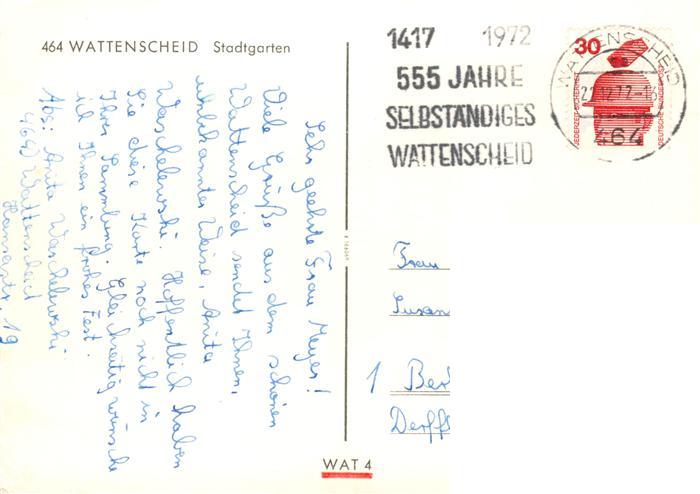 464 WATTENSCHEID Stadtgarten
Sehr geehrte Frau Meyer!
Viele Grüße aus dem schönen
Wattenscheid sendet Ihnen,
unbekannter Weise, Anita
Waschelewski. Hoffentlich haben
Sie diese Karte noch nicht in
Ihrer Sammlung. Gleichzeitig wünsche
ich Ihnen ein frohes Fest.
Abs: Anita Waschelewski
4640 Wattenscheid
Hansastr. 19
1417 1972
555 JAHRE
SELBSTÄNDIGES
WATTENSCHEID
30
JEDERZEIT SICHERHEIT
DEUTSCHE BUNDESPOST
WATTENSCHEID
22.12.72-18
464
Frau
Susan
1 Ber
Derffs
WAT 4